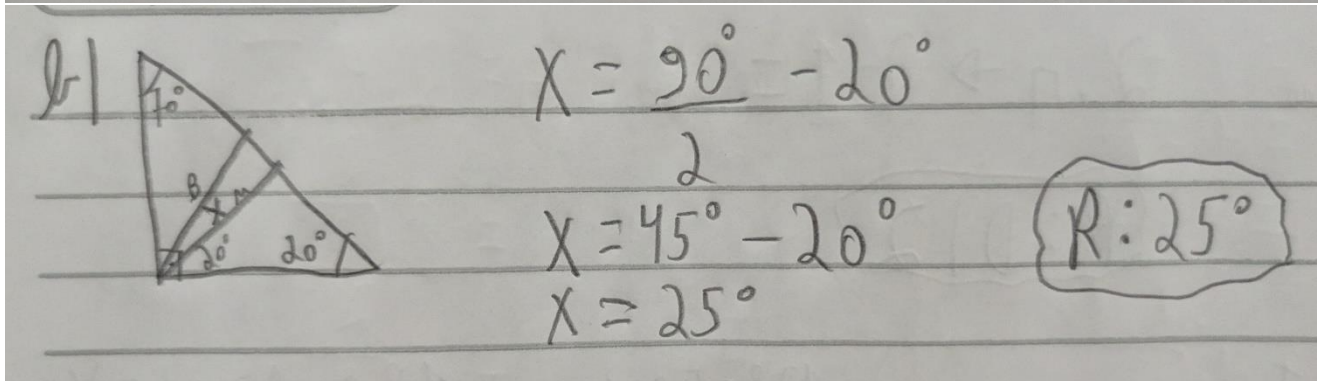 b)
70°
B
M
x
20°
20°
X = 90° - 20°
2
X = 45° - 20°
X = 25°
R: 25°